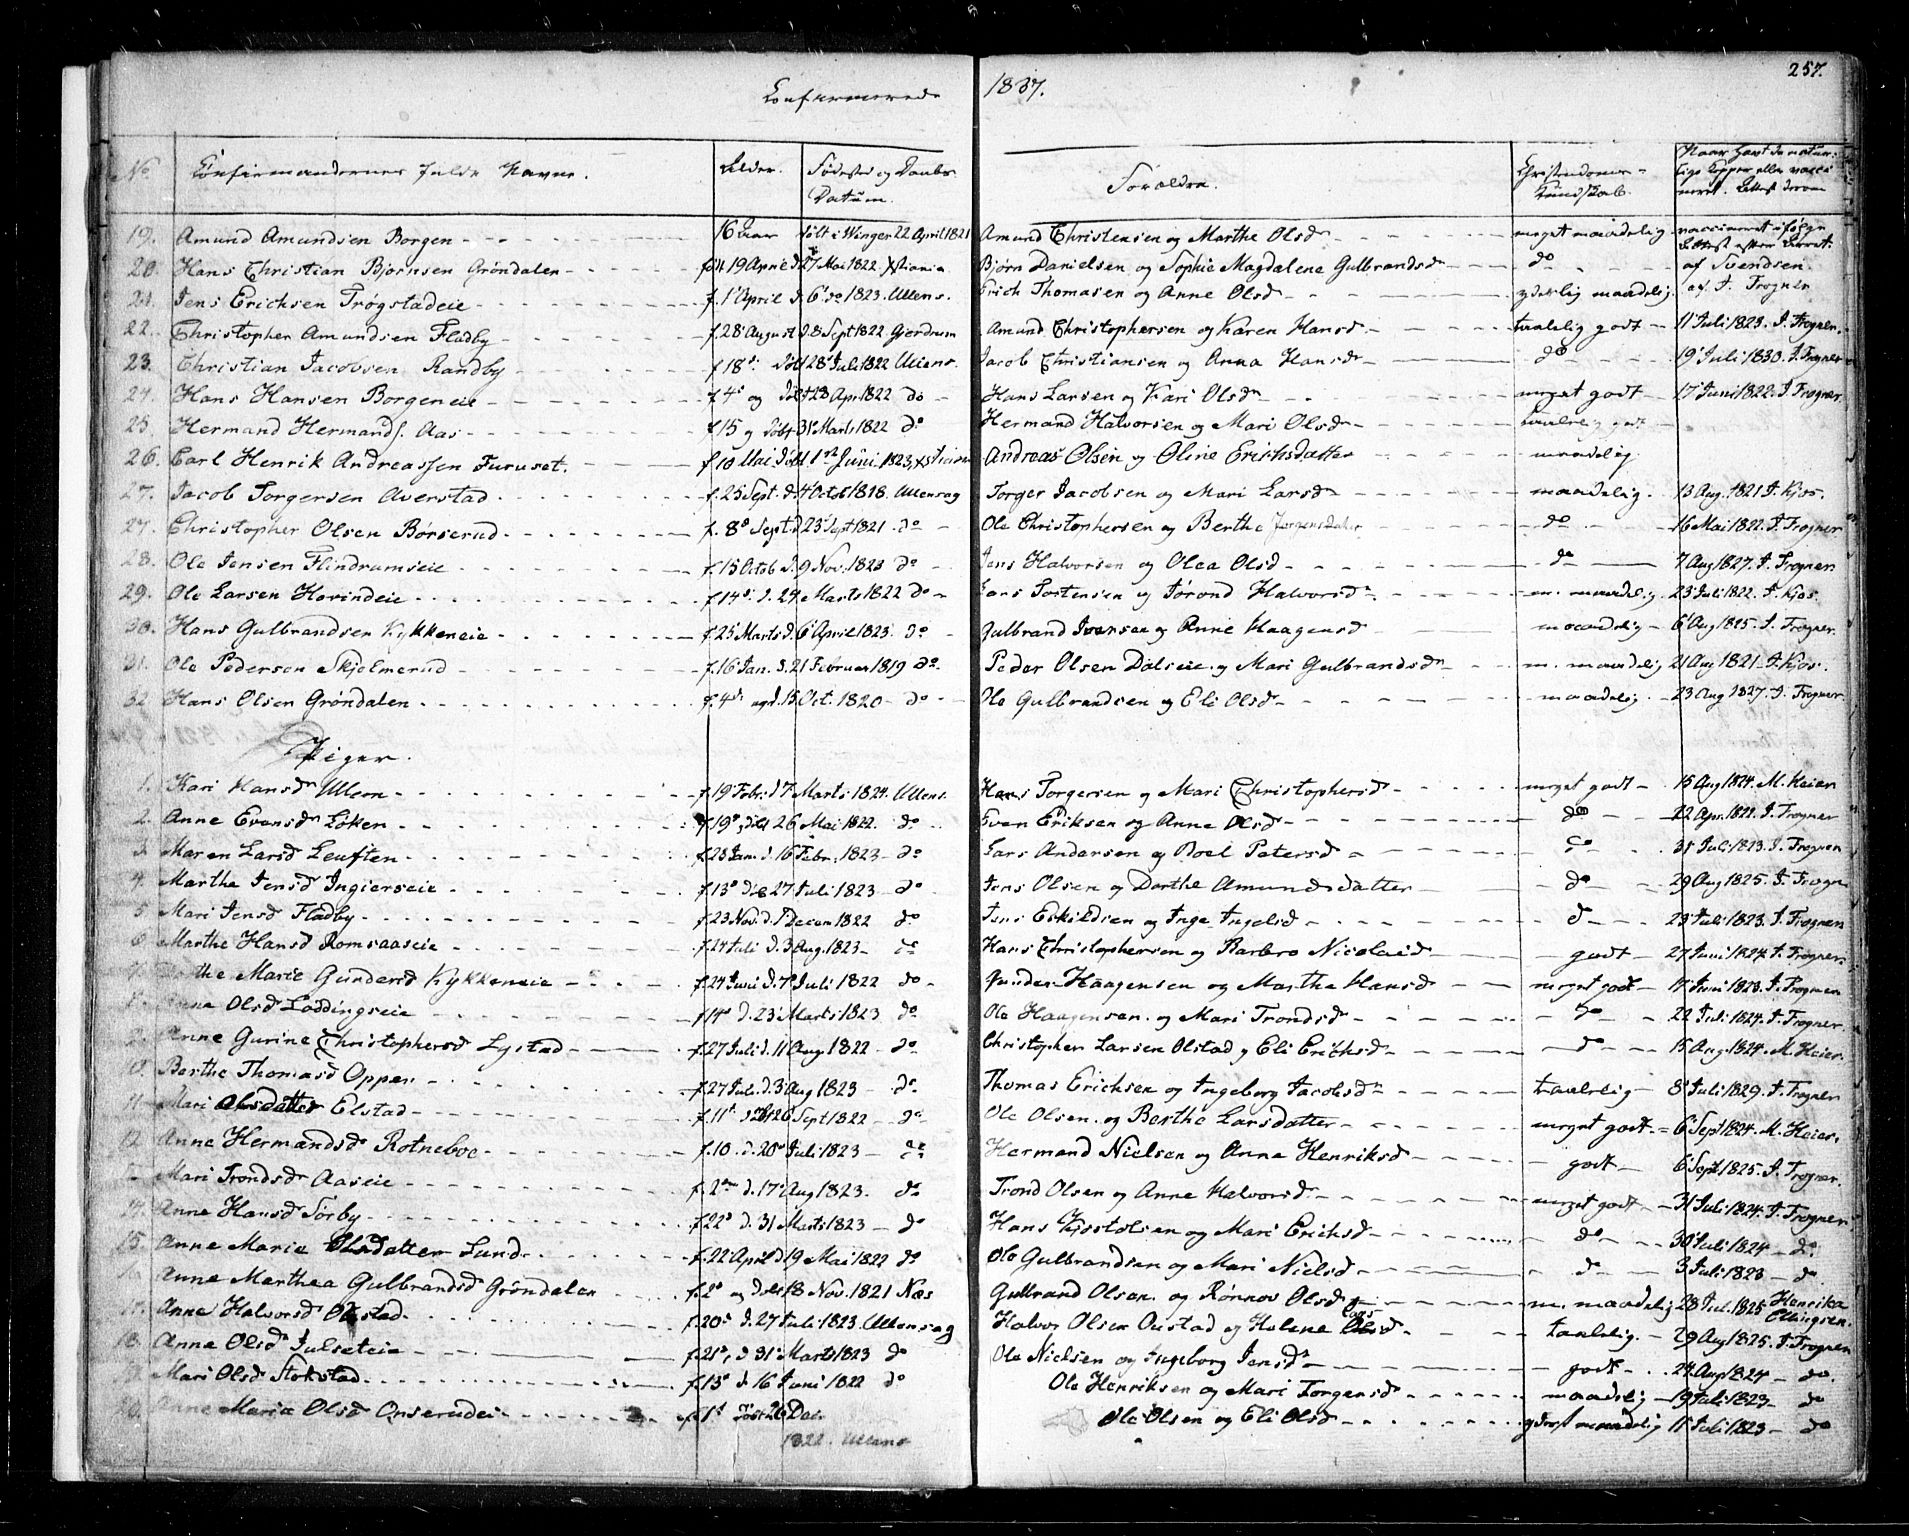 Confirmerede 1837. 257.
No Confirmandernes fulde Navne. Alder. Fødested og Daabs Datum. Forældre. Christendoms-Kundskab. Naar havt de naturlige Kopper eller vaccineret. Attest derom
19. Amund Amundsen Borgen 16 Aar døbt i Winger 22 April 1821 Amund Christensen og Marthe Olsd meget maadelig vaccineret ifølge Attest
20. Hans Christian Bjørnsen Grøndalen 19 April d. 27 Mai 1822 Xstiania Bjørn Danielsen og Sophie Magdalene Gulbrandsd do af Svendsen
21. Jens Erichsen Trøgstadeie f. 1 April d. 6 do 1823. Ullens. Erich Thomasen og Anne Olsd maadelig. af J. Trogner
22. Christopher Amundsen Fladby f. 28 August d. 8 Sept 1822 Gjerdrum Amund Christophersen og Karen Hansd taalelig godt 11 Juli 1823. J. Trogner.
23. Christian Jacobsen Randby f 18 døbt 28 Juli 1822 Ullens. Jacob Christiansen og Anna Hansd do 19 Juli 1830. J. Trogner
24. Hans Hansen Borgeneie f 4 og døbt 28 Apr 1822 do Hans Larsen og Kari Olsd meget godt 17 Juni 1822. J. Trogner.
25. Hermand Hermands. Aas f 15 og døbt 31 Marts 1822 do Hermand Halvorsen og Mari Olsd taalelig godt
26. Carl Henrik Andreassen Furuset. f. 10 Mai døbt 1 Juni 1823, Xstiania Andreas Olsen og Oline Erichsdatter maadelig
27. Jacob Torgersen Averstad f. 25 Sept. d. 4 Octob 1818. Ullensag Torger Jacobsen og Mari Larsd maadelig. 13 Aug. 1821 J. Kjos.
27. Christopher Olsen Børserud f. 8 Sept. d. 23 Sept 1821 do Ole Christophersen og Berthe Jørgensdatter do 16 Mai 1822. J. Trogner
28. Ole Jensen Flindrumseie f. 15 Octob d. 9 Nov. 1823 do Jens Halvorsen og Olea Olsd do 7 Aug 1827. J. Trogner
29. Ole Larsen Hovindeie f 14 d. 24 Marts 1822 do Lars Tostensen og Jørond Halvorsd m. maadelig 23 Juli 1822. J. Kjos.
30. Hans Gulbrandsen Kykkeneie f. 25 Marts d. 6 April 1823. do Gulbrand Iversen og Anne Haagensd maadelig 6 Aug 1825. J. Trogner.
31. Ole Pedersen Skjelmerud f. 16 Jan. d. 21 Februar 1819 do. Peder Olsen Dalseie og Mari Gulbrandsd m. maadelig 21 Aug 1821 J. Kjos.
32 Hans Olsen Grøndalen f. 4 og d. 15 Oct. 1820 do Ole Gulbrandsen og Eli Olsd maadelig 23 Aug 1827. J. Trogner.
Piger.
1. Kari Hansd Ulleren f. 19 Febr. d 7 Marts 1824. Ullens. Hans Torgersen og Mari Christophersd meget godt 15 Aug 1824. M. Heier
2. Anne Evensd Løken f. 19 døbt 26 Mai 1822. do Even Eriksen og Anne Olsd do 22 Apr. 1822. J. Trogner
3. Maren Larsd Leuften f. 23 Jan. d. 16 Febr. 1823 do Lars Andersen og Boel Petersd do 31 Juli 1823. J. Trogner
4. Marthe Jensd Ingierseie f. 13 27 Juli 1823 do Jens Olsen og Dorthe Amundsdatter do 29 Aug 1825. J. Trogner
5 Mari Jensd Fladby f. 23 Nov. d. 1 Decem 1822 do Jens Eskildsen og Inge Ingelsd d 23 Juli 1823. J. Trogner
6 Marthe Hansd Romsaaseie f. 24 Juli d. 3 Aug. 1823 do Hans Christophersen og Barbro Nicolaid godt 27 Juni 1824. J. Trogner.
7. Marie Gundersd Kykkeneie f. 24 Juni d. 7 Juli 1822 do Gunder Haagensen og Marthe Hansd meget godt 17 Juni 1823. J. Trogner
Anne Olsd Loddingseie f 14 d. 23 Marts 1823 do Ole Haagensen og Mari Trondsd do 22 Juli 1824. J. Trogner.
9. Anne Gurine Christophersd Lystad f. 27 Juli d. 11 Aug. 1822 do Christopher Larsen Olstad og Eli Erichsd do 15 Aug. 1824. M. Heier.
10. Berthe Thomasd Opper f. 27 Juli d. 3 Aug 1823 do Thomas Erichsen og Ingeborg Jacobsd taalelig 8 Juli 1829. J. Trogner
11 Mari Olsdatter Elstad f. 11 døbt 26 Sept 1822 do Ole Olsen og Berthe Larsdatter meget godt 6 Sept 1824. M. Heier.
12. Anne Hermandsd Rotneboe f. 10. d. 20 Juli 1823 do Hermand Nielsen og Anne Henriksd godt 6 Sept 1825. J. Trogner.
Mari Trondsd Aaseie f. 2 d. 17 Aug 1823. do Trond Olsen og Anne Halvorsd meget godt 31 Juli 1824. J. Trogner
14. Anne Hansd Sørby f. 22 d. 31 Marts 1823 do Hans Kjostolsen og Mari Erichsd do 30 Juli 1824 do
15. Anne Marie Olsdatter Lund f. 22 April d 19 Mai 1822 do Ole Gulbrandsen og Mari Nielsd d 3 Juli 1823 do
16 Anne Marthea Gulbrandsd Grøndalen f. 2 og døbt 18 Nov. 1821 Næs Gulbrand Olsen og Rønnov Olsd m. maadelig 28 Jul. 1825 Henrika Ellingsen.
17. Anne Halvorsd Onstad f. 20 d. 27 Juli 1823. Ullensag Halvor Olsen Onstad og Helene Larsd taalelig. 29 Aug 1825. J. Trogner
18. Anne Olsd Julseteie f. 21 d 31 Marts 1823 do Ole Nielsen og Ingeborg Jensd godt 24 Aug 1824 do.
19. Mari Olsd Stokstad f. 13 d. 16 Juni 1822 do Ole Henriksen og Mari Torgersd maadelig 19 Juli 1823 do
20. Anne Maria Olsd Onserudei f. 1 døbt 26 Dec. 1822. Ullens Ole Olsen og Eli Olsd maadelig 11 Juli 1823 do